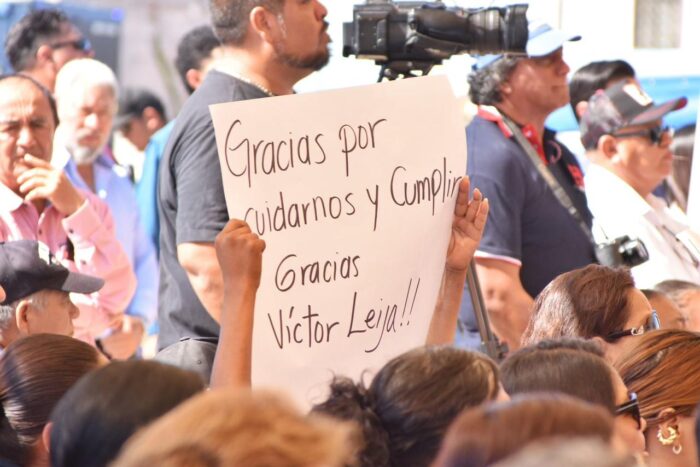 Gracias por
cuidarnos y Cumplir
Gracias
Víctor Leija!!